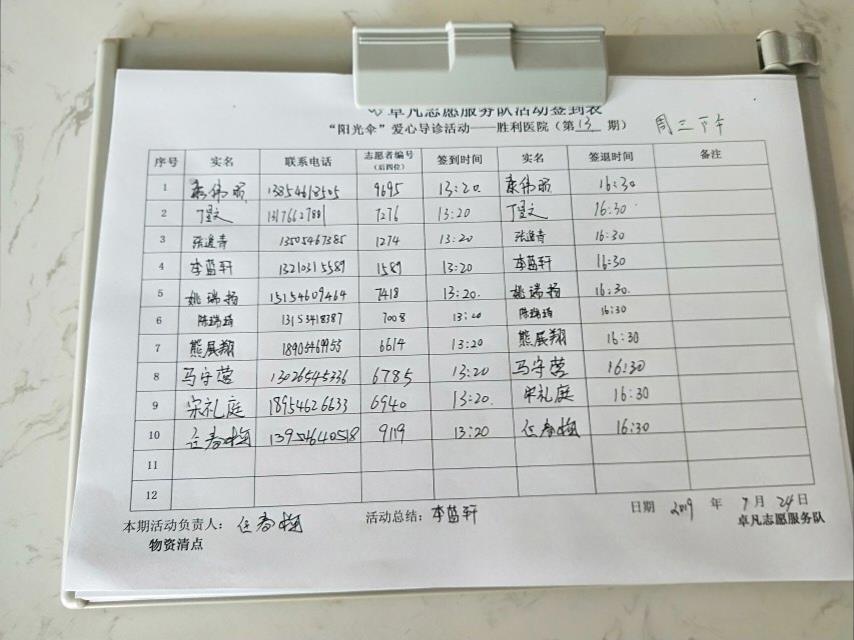 卓凡志愿服务队活动签到表
“阳光伞”爱心导诊活动——胜利医院（第 13 期） 周三下午
序号 实名 联系电话 志愿者编号（后四位） 签到时间 实名 签退时间 备注
1 袁伟明 13854618505 9695 13:20 袁伟明 16:30
2 丁望文 13176627881 7276 13:20 丁望文 16:30
3 张逢青 13505467385 1274 13:20 张逢青 16:30
4 李蓝轩 13210315589 1589 13:20 李蓝轩 16:30
5 姚瑞梅 15154609464 7418 13:20. 姚瑞梅 16:30.
6 陈瑞琦 13153418387 7008 13:20 陈瑞琦 16:30
7 熊展翔 18905469953 6614 13:20 熊展翔 16:30
8 马守营 13026545336 6785 13:20 马守营 16:30
9 宋礼庭 18954626633 6940 13:20. 宋礼庭 16:30
10 任春梅 13954640518 9119 13:20 任春梅 16:30
11
12
本期活动负责人： 任春梅 活动总结： 李蓝轩 日期 2019 年 7 月 24 日
物资清点 卓凡志愿服务队